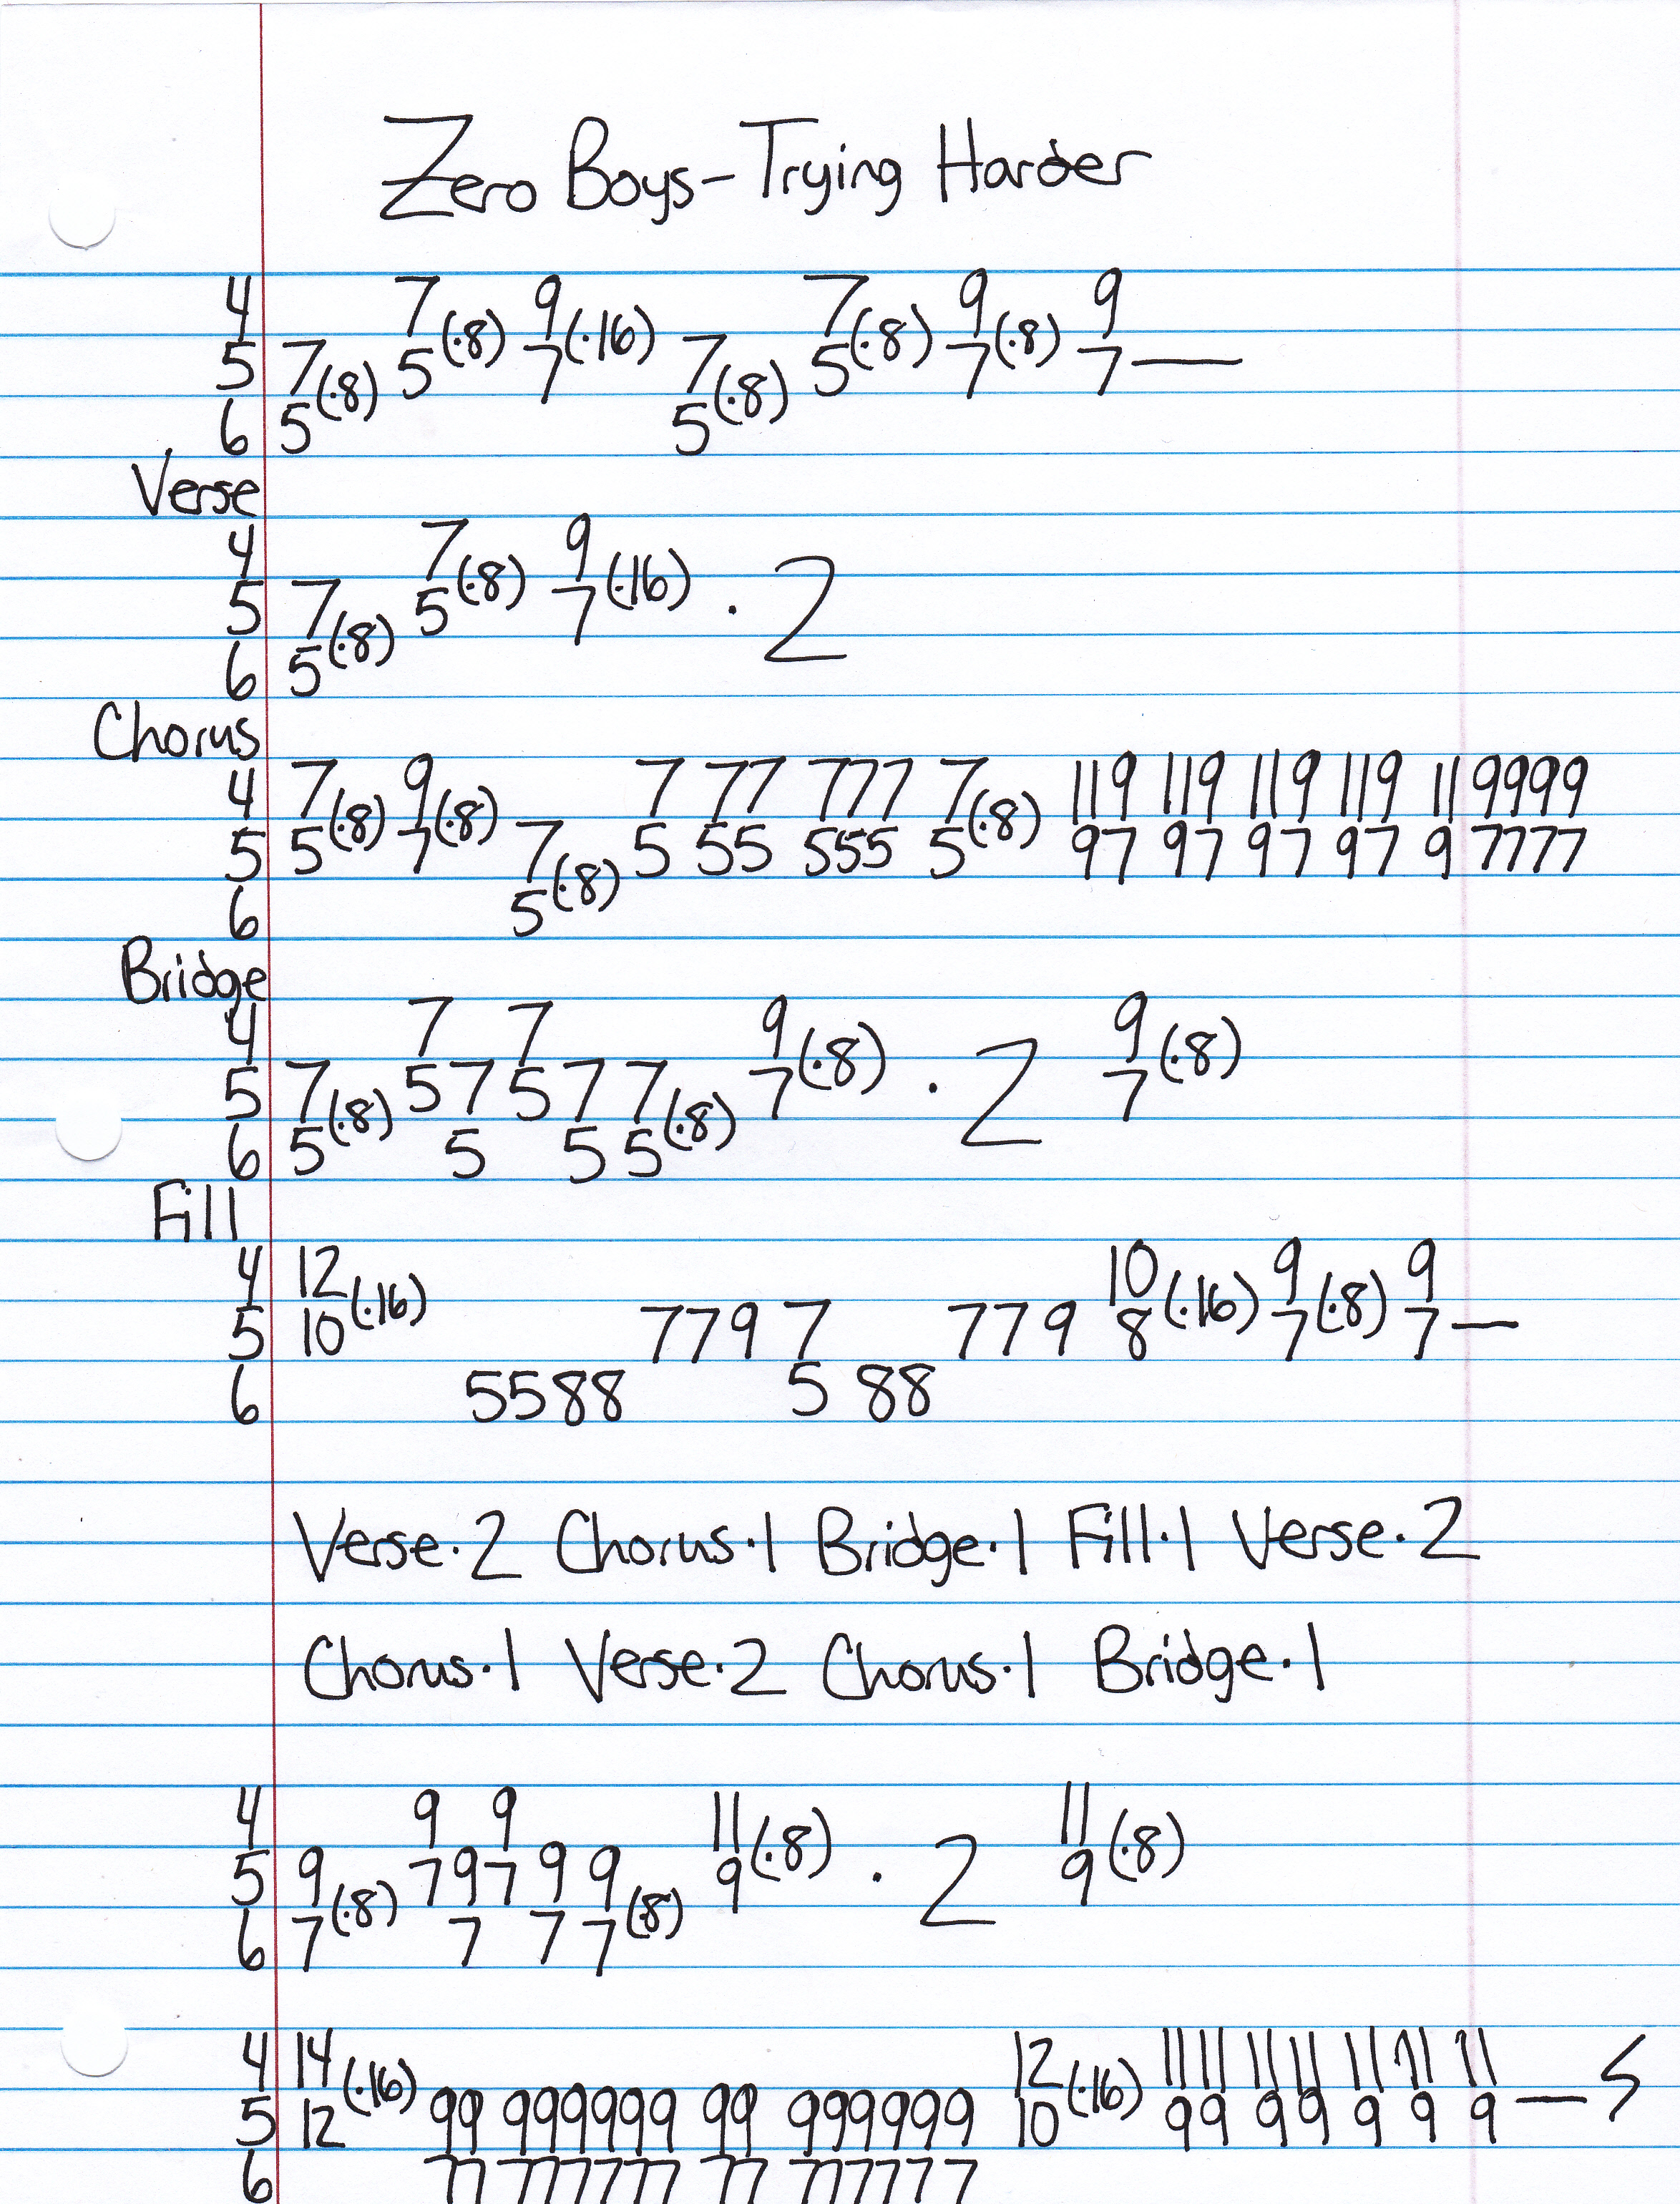 Zero Boys-Trying Harder
4 7(·8) 9(·16) 7(·8) 9(·8) 9
5 7(·8) 5 7 7(·8) 5 7 7—
6 5 5
Verse
4 7(·8) 9(·16) · 2
5 7(·8) 5 7
6 5
Chorus
4 7(·8) 9(·8) 7 77 777 7(·8) 119 119 119 119 119999
5 5 7 7(·8) 5 55 555 5 97 97 97 97 9 7777
6 5
Bridge
4 7 7 9(·8) · 2 9(·8)
5 7(·8) 57 57 7(·8) 7 7
6 5 5 5 5
Fill
4 12(·16) 10(·16) 9(·8) 9
5 10 779 7 779 8 7 7—
6 5588 5 88
Verse·2 Chorus·1 Bridge·1 Fill·1 Verse·2
Chorus·1 Verse·2 Chorus·1 Bridge·1
4 9 9 11(·8) · 2 11(·8)
5 9(·8) 797 9 9(·8) 9 9
6 7 7 7 7
4 14(·16) 12(·16) 1111 1111 11 11 11 — S
5 12 99 999999 99 999999 10 99 99 9 9 9
6 77 777777 77 777777